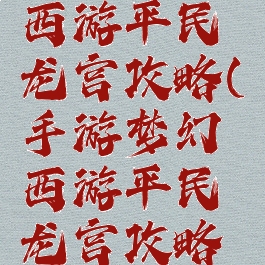 西游平民
龙宫攻略(
手游梦幻
西游平民
龙宫攻略